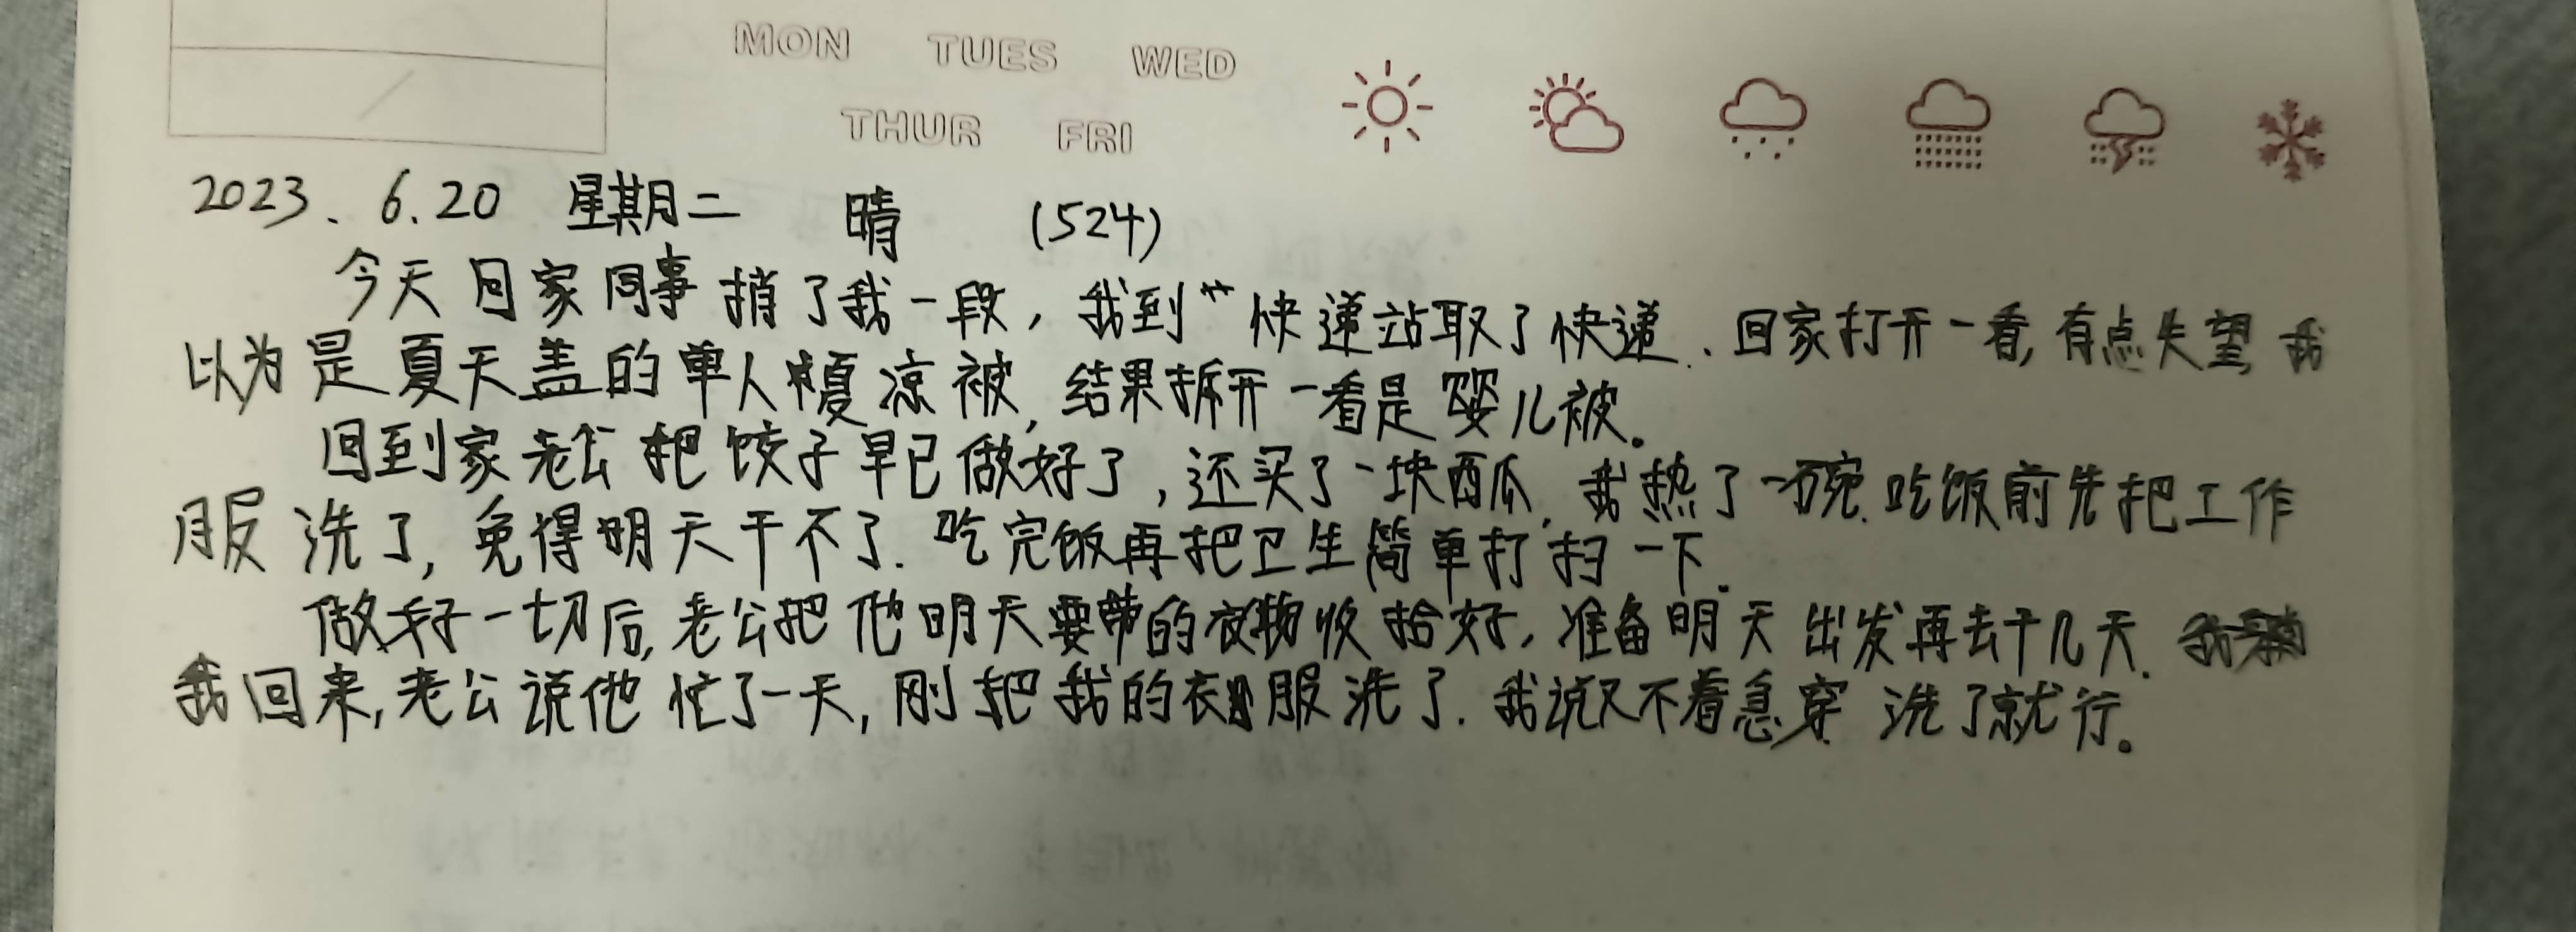 MON TUES WED
THUR FRI
2023. 6.20 星期二 晴 (524)
今天回家同事捎了我一段,我到**快递站取了快递.回家打开一看,有点失望,我
以为是夏天盖的单人夏凉被,结果拆开一看是婴儿被。
回到家老公把饺子早已做好了,还买了一块西瓜,我热了一碗.吃饭前先把工作
服洗了,免得明天干不了.吃完饭再把卫生简单打扫一下.
做好一切后,老公把他明天要带的衣物收拾好,准备明天出发再去干几天.
我回来,老公说他忙了一天,刚把我的衣服洗了.我说又不着急穿洗了就行。